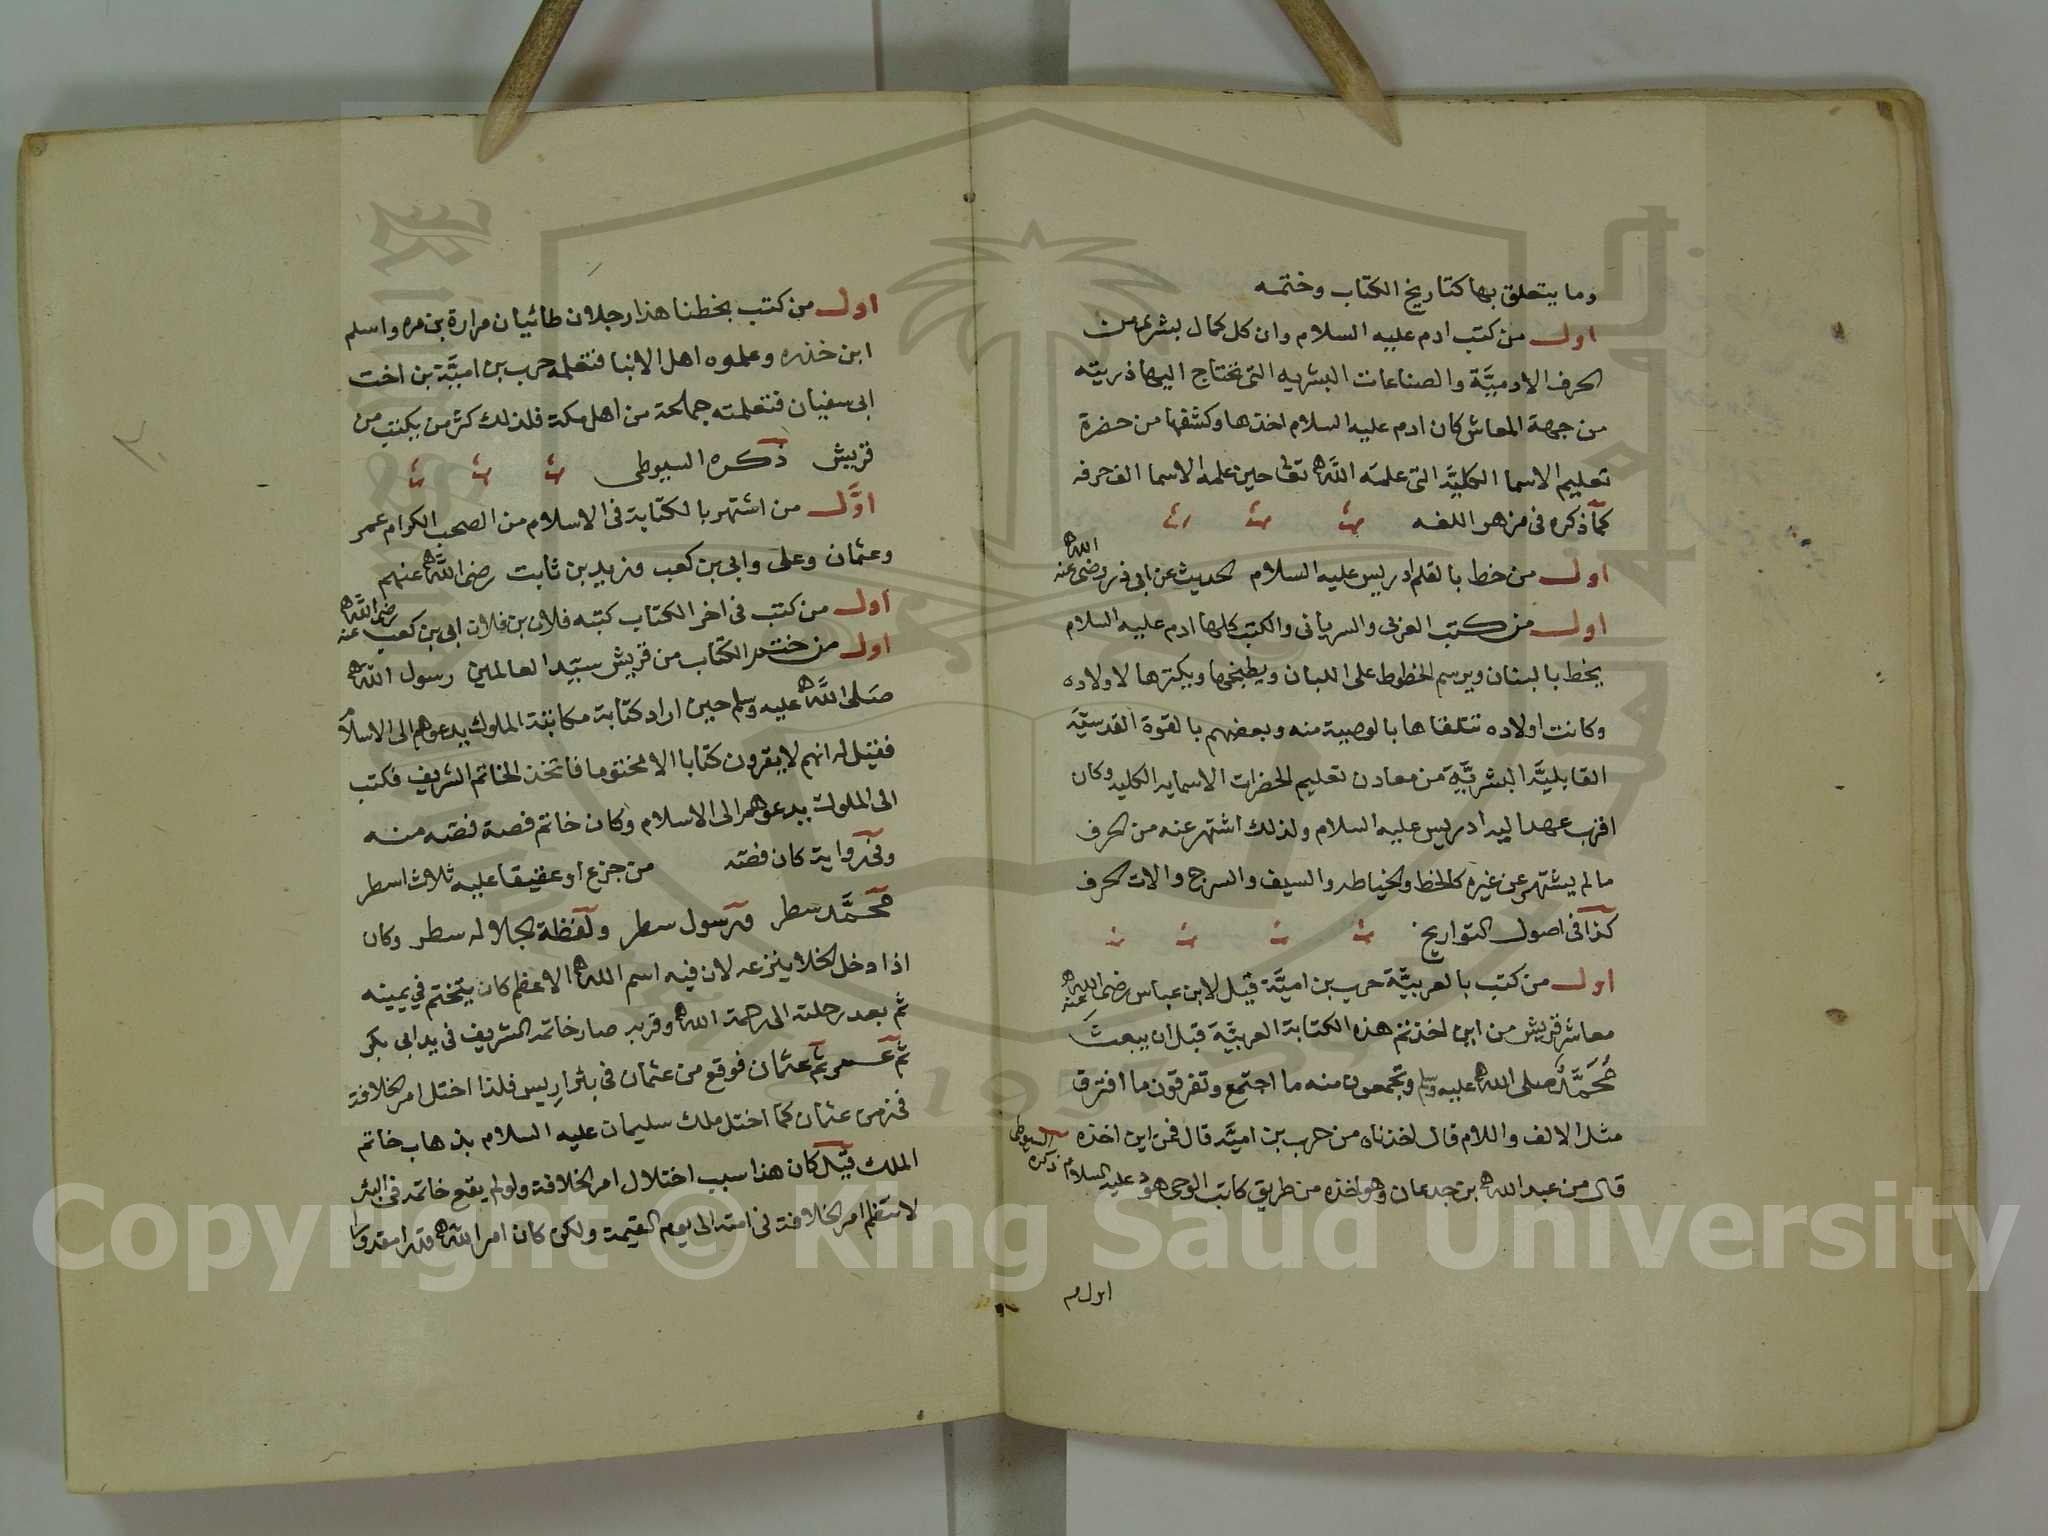 وما يتعلق بها كتاريخ الكتاب وختمه
اول من كتب ادم عليه السلام وان كل كمال بشرى من
الحرف الادميَّة والصناعات البشريه التى تحتاج اليها ذريته
من جهة المعاش كان ادم عليه السلام اخذها وكشفها من حضرة
تعليم الاسما الكليَّه التى علمه اللّٰه تعالى حين علمه الاسما الف حرفه
كما ذكره فى مزهر اللغه
اول من خط بالقلم ادريس عليه السلام لحديث عن ابى ذر رضى اللّٰه عنه
اول من كتب العربى والسريانى والكتب كلها ادم عليه السلام
يخط بالبنان ويرسم الخطوط على اللبان ويطبخها ويكترها لاولاده
وكانت اولاده تتلقاها بالوصية منه وبعضهم بالقوة القدسيَّه
القابليَّه البشريَّة من معادن تعليم الحضرات الاسمايه الكليه وكان
اقرب عهدا اليه ادريس عليه السلام ولذلك اشتهر عنه من الحرف
ما لم يشتهر عن غيره كالخط والخياطه والسيف والسرج والات الحرف
كذا فى اصول التواريخ
اول من كتب بالعربيَّة حرب بن اميَّة قيل لابن عباس رضى اللّٰه عنه
معاشر قريش من اين اخذتم هذه الكتابة العربيَّة قبل ان يبعث
مُحَمَّدٌ صلى اللّٰه عليه وسلم وتجمعون منه ما اجتمع وتفرقون ما افترق
مثل الالف واللام قال اخذناه من حرب بن اميَّه قال فمن اين اخذه
قال من عبد اللّٰه بن جدعان وهو اخذه من طريق كاتب الوحى هود عليه السلام ذكره السيوطى
اول م
اول من كتب بخطنا هذا رجلان طائيان مرارة بن مره واسلم
ابن خذره وعلموه اهل الانبا فتعلمه حرب بن اميَّة بن اخت
ابى سفيان فتعلمته جماعة من اهل مكة فلذلك كثر من يكتب من
قريش ذكره السيوطى
اوَّل من اشتهر بالكتابة فى الاسلام من الصحب الكرام عمر
وعثمان وعلى وابى بن كعب وزيد بن ثابت رضى اللّٰه عنهم
اول من كتب فى اخر الكتاب كتبه فلان بن فلان ابى بن كعب رضى اللّٰه عنه
اول من ختم الكتاب من قريش سيّد العالمين رسول اللّٰه
صَلى اللّٰه عليه وسلم حين اراد كتابة مكاتبة الملوك يدعوهم الى الاسلام
فقيل له انهم لا يقرون كتابا الا مختوما فاتخذ الخاتم الشريف فكتب
الى الملوك يدعوهم الى الاسلام وكان خاتم فضة فصه منه
وفى رواية كان فصه من جزع او عقيقا عليه ثلاث اسطر
محمَّد سطر ورسول سطر ولفظة الجلاله سطر وكان
اذا دخل الخلا ينزعه لان فيه اسم اللّٰه الاعظم كان يتختم فى يمينه
ثم بعد رحلته الى رحمة اللّٰه وقربه صار خاتمه الشريف فى يد ابى بكر
ثم عمر ثم عثمان فوقع من عثمان فى بئر اريس فلذا اختل امر الخلافة
فى زمن عثمان كما اختل ملك سليمان عليه السلام بذهاب خاتم
الملك قيل كان هذا سبب اختلال امر الخلافة ولو لم يقع خاتمه فى البئر
لانتظم امر الخلافة فى امته الى يوم القيمة ولكن كان امر اللّٰه قدرا مقدورا
٢
Copyright © King Saud University
1957